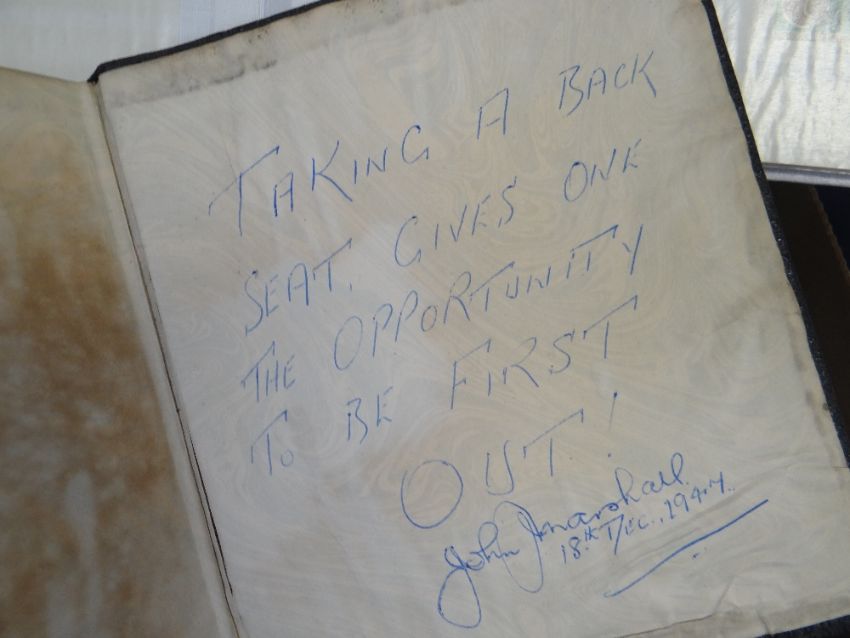 TAKING A BACK
SEAT, GIVES ONE
THE OPPORTUNITY
TO BE FIRST
OUT!
John J Marshall.
18th Dec., 1947.